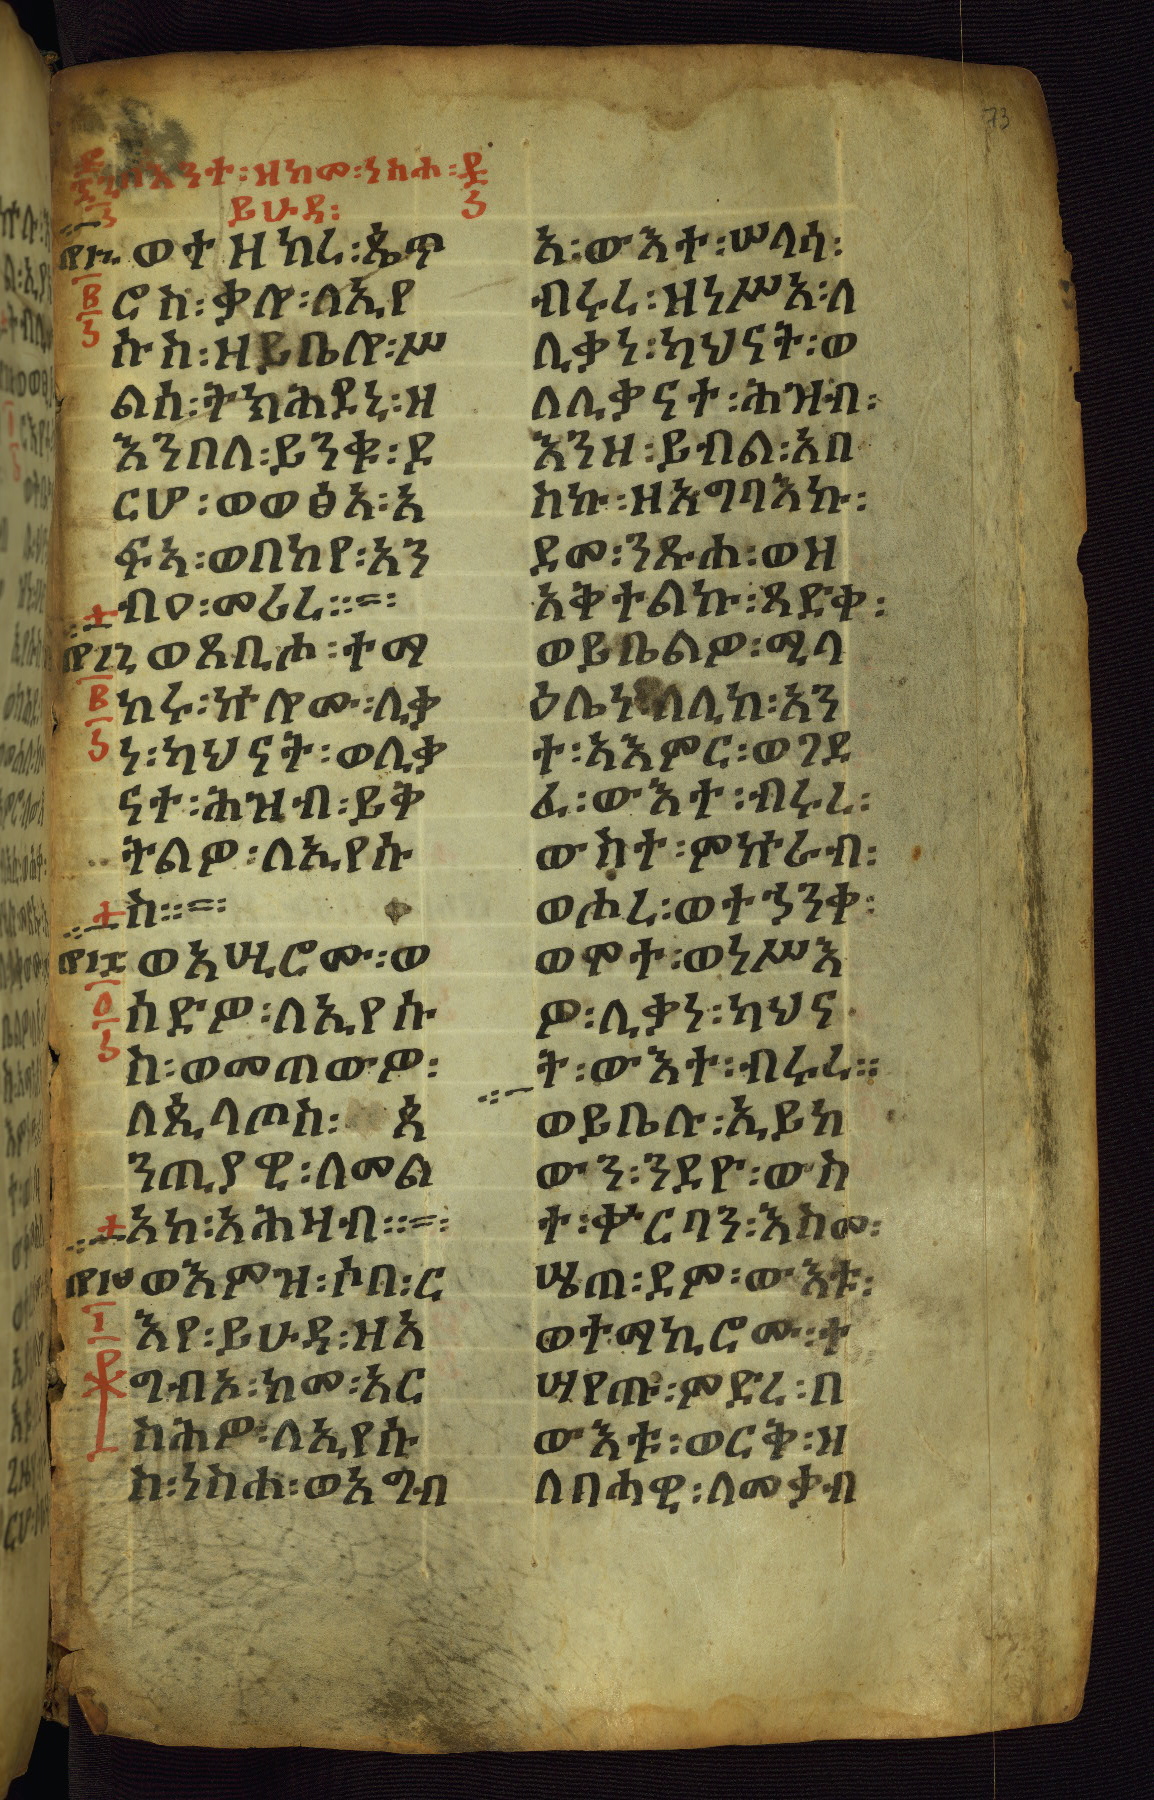 በእንተ፡ዘከመ፡ነስሐ፡
ይሁዳ፡
ወተዘከረ፡ጴጥ
ሮስ፡ቃሎ፡ለኢየ
ሱስ፡ዘይቤሎ፡ሥ
ልሰ፡ትክሕደኒ፡ዘ
እንበለ፡ይንቁ፡ዶ
ርሆ፡ወወፅአ፡አ
ፍአ፡ወበከየ፡አን
ብዐ፡መሪረ፡፡
ወጸቢሖ፡ተማ
ከሩ፡ኵሎሙ፡ሊቃ
ነ፡ካህናት፡ወሊቃ
ናተ፡ሕዝብ፡ይቅ
ትልዎ፡ለኢየሱ
ስ፡፡
ወአሢሮሙ፡ወ
ሰድዎ፡ለኢየሱ
ስ፡ወመጠውዎ፡
ለጲላጦስ፡ጰ
ንጤያዊ፡ለመል
አከ፡አሕዛብ፡፡
ወእምዝ፡ሶበ፡ር
እየ፡ይሁዳ፡ዘአ
ግብኦ፡ከመ፡አር
ስሕዎ፡ለኢየሱ
ስ፡ነስሐ፡ወአግብ
አ፡ውእተ፡ሠላሳ፡
ብሩረ፡ዘነሥአ፡ለ
ሊቃነ፡ካህናት፡ወ
ለሊቃናተ፡ሕዝብ፡
እንዘ፡ይብል፡አበ
ስኩ፡ዘአግባእኩ፡
ደመ፡ንጹሐ፡ወዘ
አቅተልኩ፡ጻድቀ፡
ወይቤልዎ፡ሚላ
ዕሌነ፡ለሊከ፡አን
ተ፡አእምር፡ወገደ
ፈ፡ውእተ፡ብሩረ፡
ውስተ፡ምኵራብ፡
ወሖረ፡ወተኀንቀ፡
ወሞተ፡ወነሥእ
ዎ፡ሊቃነ፡ካህና
ት፡ውእተ፡ብሩረ፡፡
ወይቤሉ፡ኢይከ
ውን፡ንደዮ፡ውስ
ተ፡ቍርባን፡እስመ፡
ሤጠ፡ደም፡ውእቱ፡
ወተማኪሮሙ፡ተ
ሣየጡ፡ምድረ፡በ
ውእቱ፡ወርቅ፡ዘ
ለበሓዊ፡ለመቃብ
73